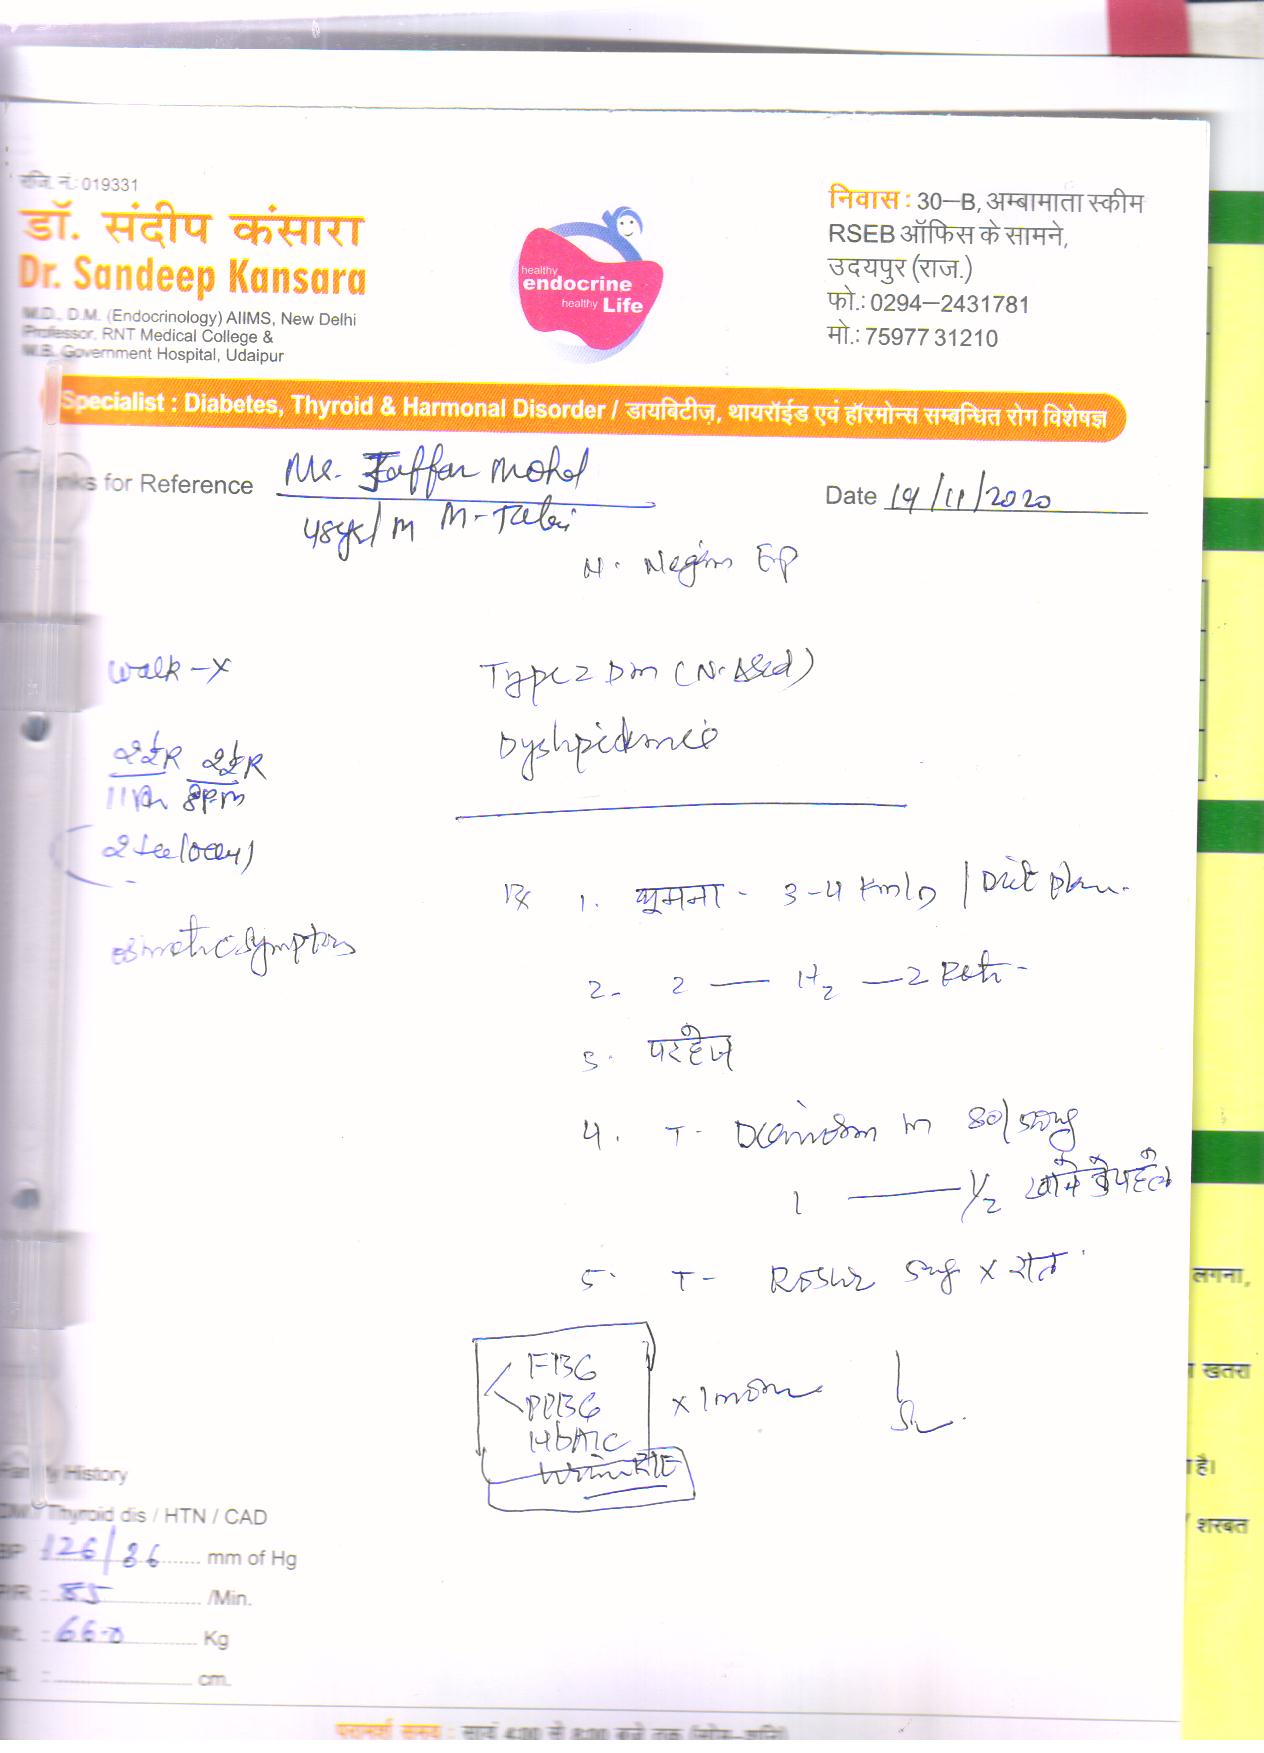 रजि. नं.: 019331
डॉ. संदीप कंसारा
Dr. Sandeep Kansara
M.D., D.M. (Endocrinology) AIIMS, New Delhi
Professor, RNT Medical College &
M.B. Government Hospital, Udaipur
healthy
endocrine
healthy Life
निवास : 30–B, अम्बामाता स्कीम
RSEB ऑफिस के सामने,
उदयपुर (राज.)
फो.: 0294–2431781
मो.: 75977 31210
Specialist : Diabetes, Thyroid & Harmonal Disorder / डायबिटीज़, थायरॉईड एवं हॉरमोन्स सम्बन्धित रोग विशेषज्ञ
Thanks for Reference Mr. Jaffar Mohd
Date 19/11/2020
48yr/M
Walk - X
Type 2 DM
Dyslipidemia
11 8pm
osmotic symptoms
Rx 1. घूमना - 3-4 Km/D / Diet plan.
2. 2 — — 2
3. परहेज
4. T- M 80/
1 — 1/2 खाने से पहले
5. T- 5mg x रात
FBG
PPBG
HbA1c
x 1 month
Family History
DM / Thyroid dis / HTN / CAD
BP 126/86 mm of Hg
P/R : 85 /Min.
Wt. : 66.0 Kg
Ht. : cm.
परामर्श समय : सायं 4:00 से 8:00 बजे तक (सोम–शनि)
लगना,
खतरा
है।
/ शरबत